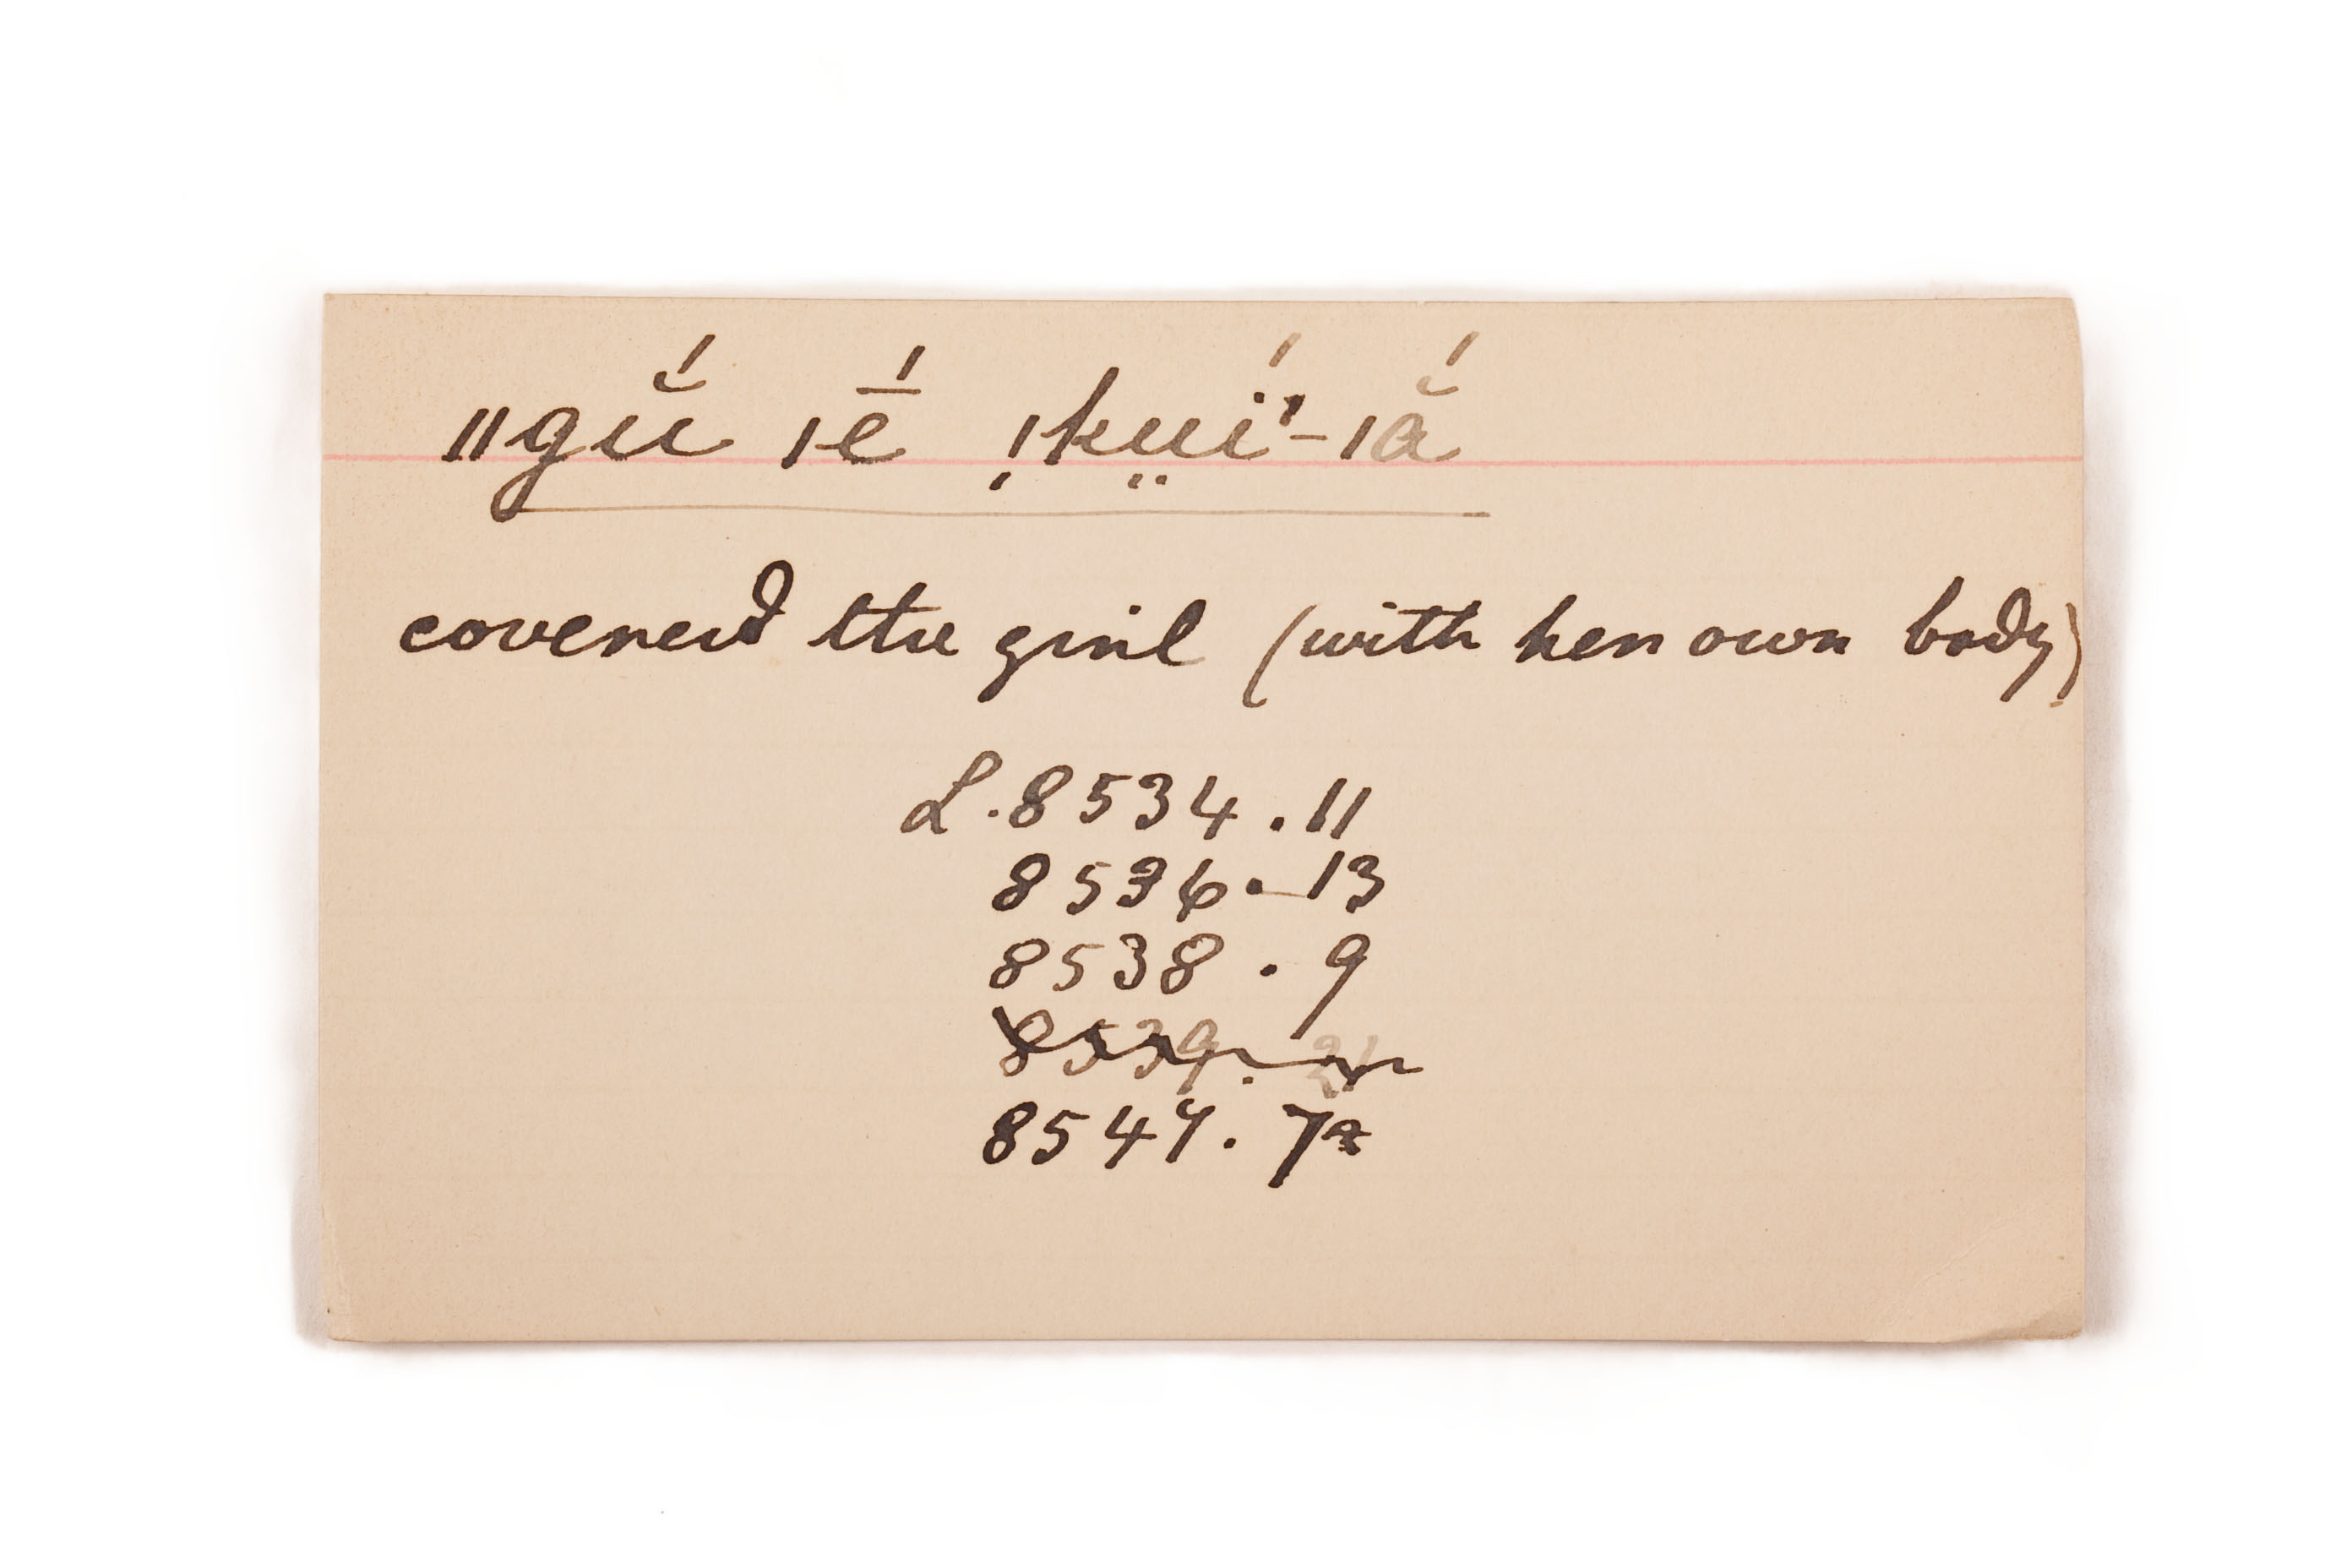 ǁgŭ́ ǀḗ ǃ̣kṳḯꞌ-ǀā̆́
covered the girl (with her own body)
L.8534.11
8536.13
8538.9
8539.
8547.7